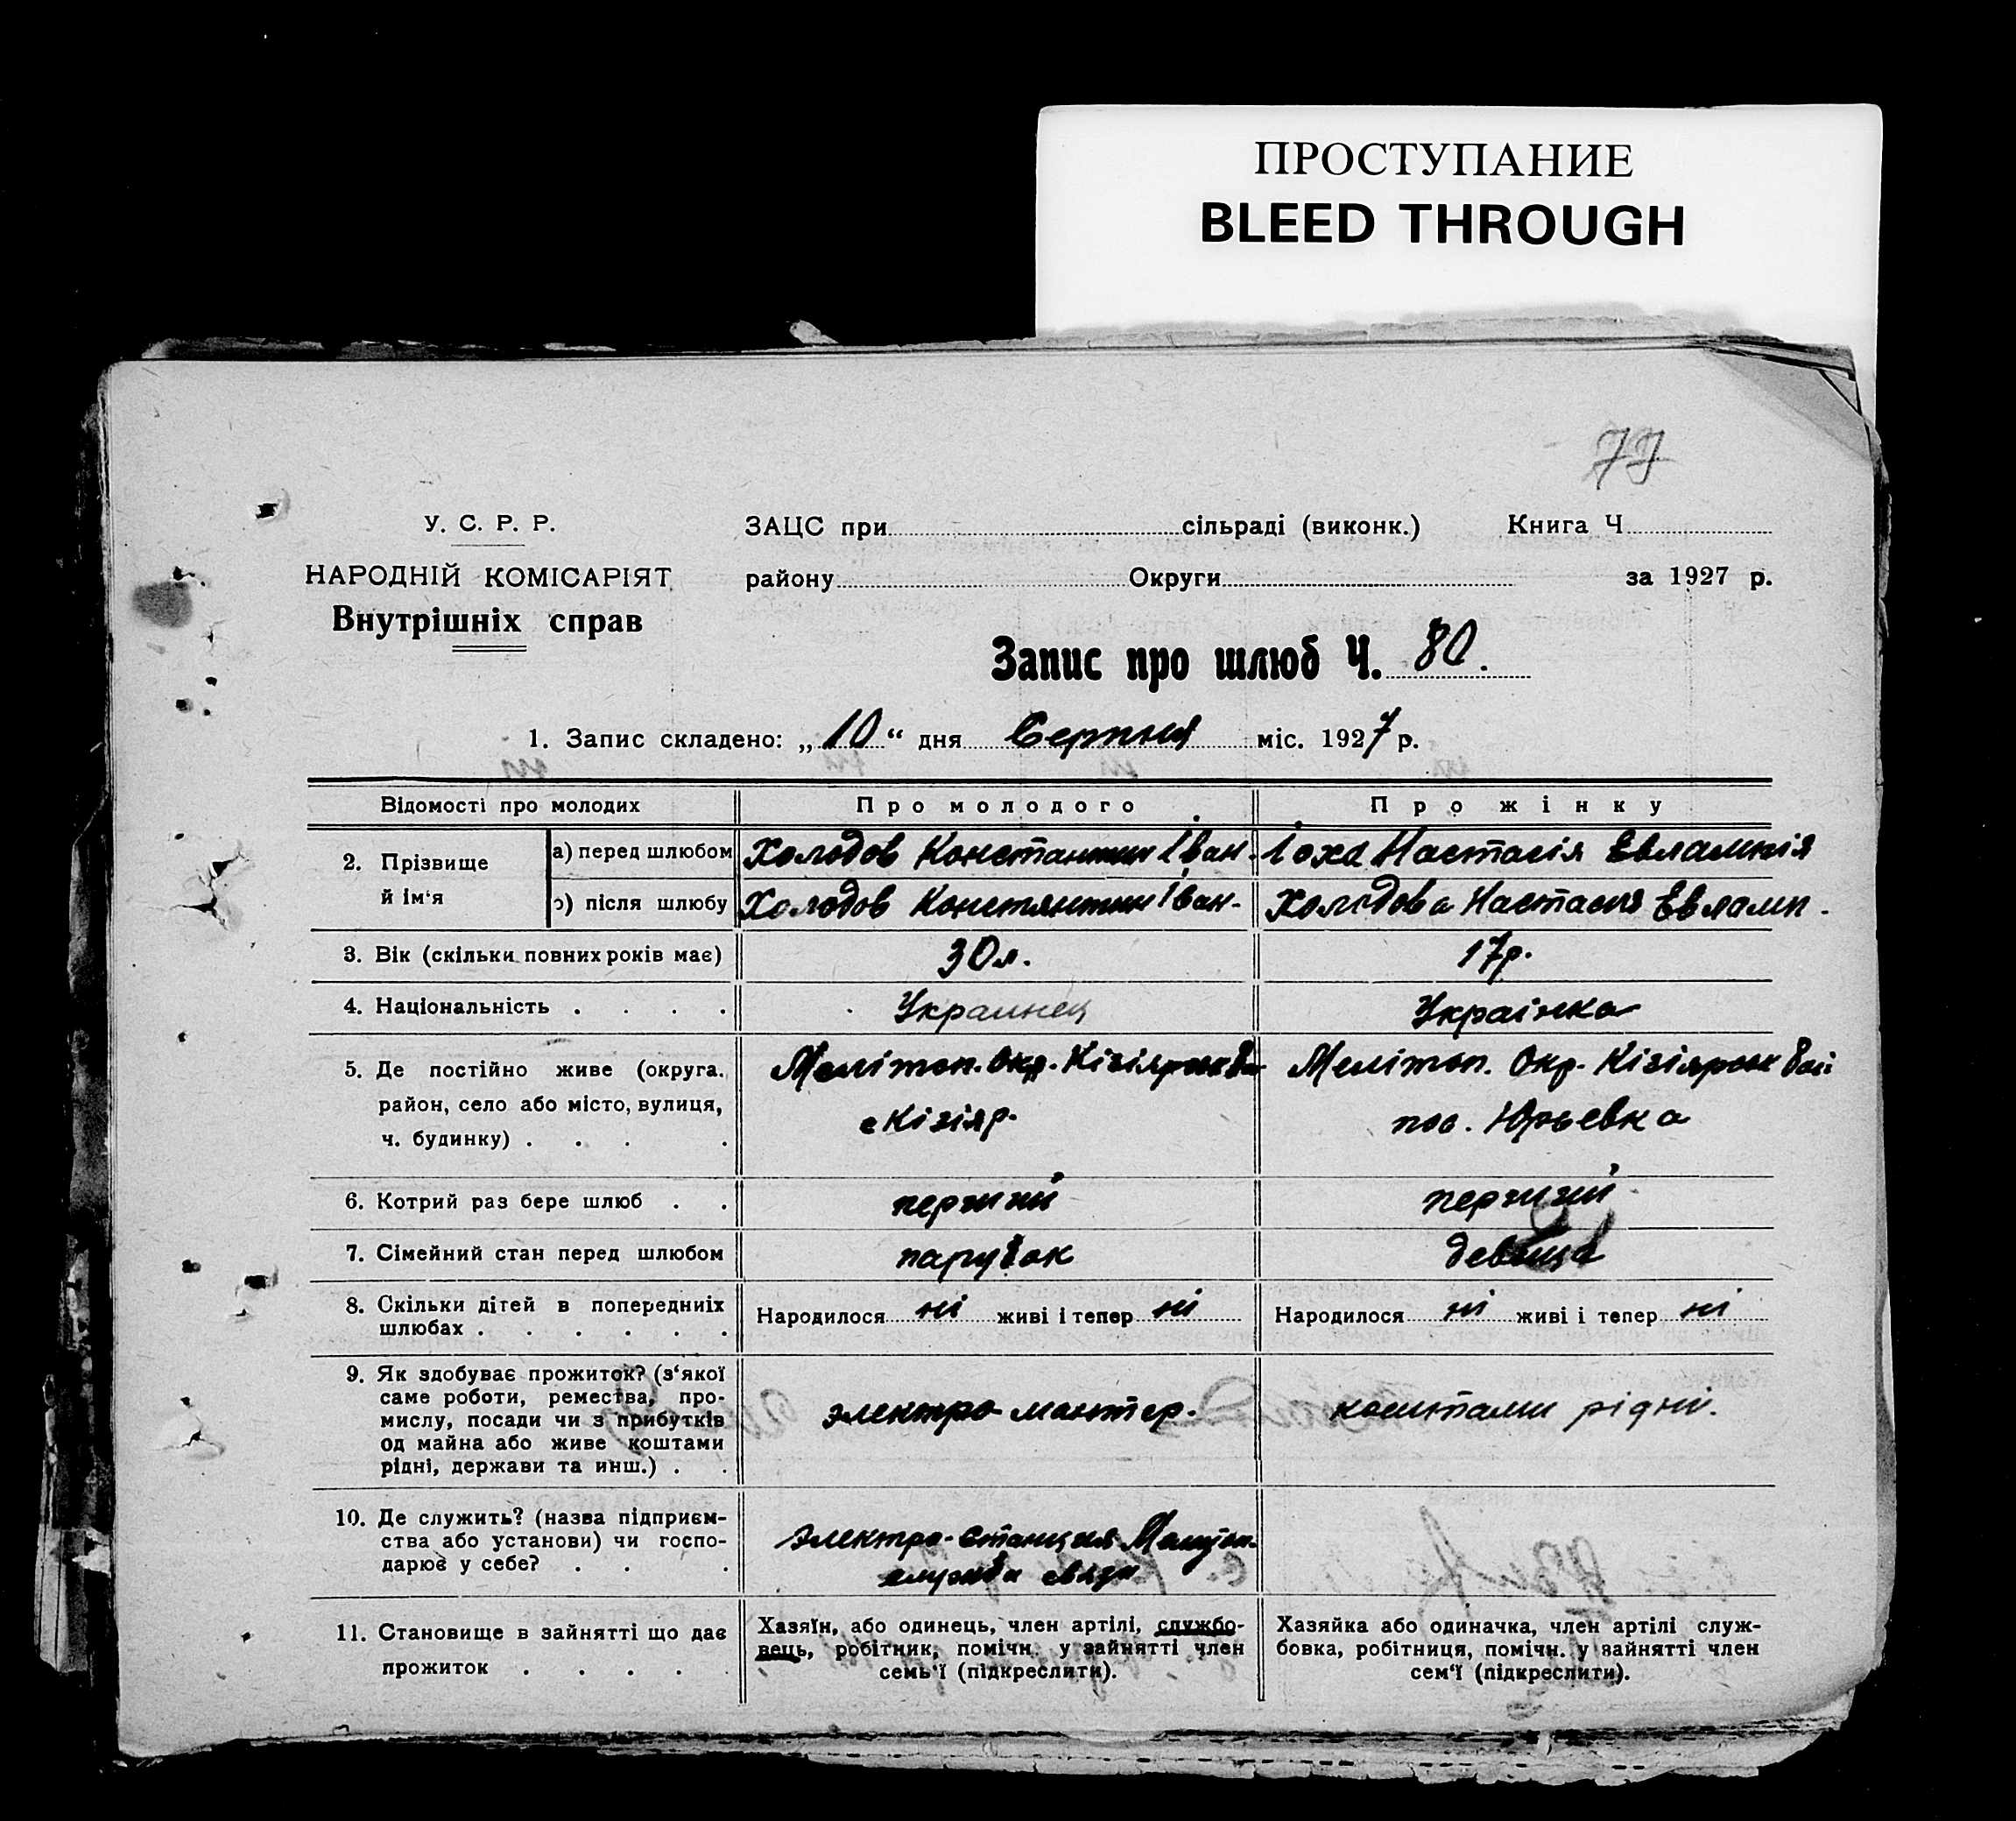 ПРОСТУПАНИЕ
BLEED THROUGH
У. С. Р. Р.
НАРОДНІЙ КОМІСАРІЯТ
Внутрішніх справ
ЗАЦС при сільраді (виконк.) Книга Ч
району Округи за 1927 р.
Запис про шлюб Ч. 80.
1. Запис складено: „10“ дня Серпня міс. 1927 р.
Відомості про молодих Про молодого Про жінку
2. Прізвище й ім‘я
а) перед шлюбом Холодов Константин Іван. Іоха Настасія Евлампія
) після шлюбу Холодов Констянтин Іван. Холодова Настасія Евламп.
3. Вік (скільки повних років має) 30 л. 17 р.
4. Національність . . . . Украинец Українка
5. Де постійно живе (округа, район, село або місто, вулиця, ч. будинку) . . . .
Меліт̄оп. Окр. Кізіярськ
с Кізіяр.
Мелітоп. Окр. Кізіярськ
пос. Юрьевка
6. Котрий раз бере шлюб . . перший перший
7. Сімейний стан перед шлюбом парубок девица
8. Скільки дітей в попередниіх шлюбах . . . . . .
Народилося ні живі і тепер ні
Народилося ні живі і тепер ні
9. Як здобуває прожиток? (з‘якої
саме роботи, ремества, про-
мислу, посади чи з прибутків
од майна або живе коштами
рідні, держави та инш.) . .
электро монтер.
коштами рідні.
10. Де служить? (назва підприєм-
ства або установи) чи госпо-
дарює у себе? . . .
электро-станция
служба связи
11. Становище в зайнятті що дає
прожиток . . . . .
Хазяїн, або одинець, член артілі, службо-
вець, робітник, помічн. у зайнятті член
семь‘ї (підкреслити).
Хазяйка або одиначка, член артілі служ-
бовка, робітниця, помічн. у зайнятті член
сем‘ї (підкреслити).